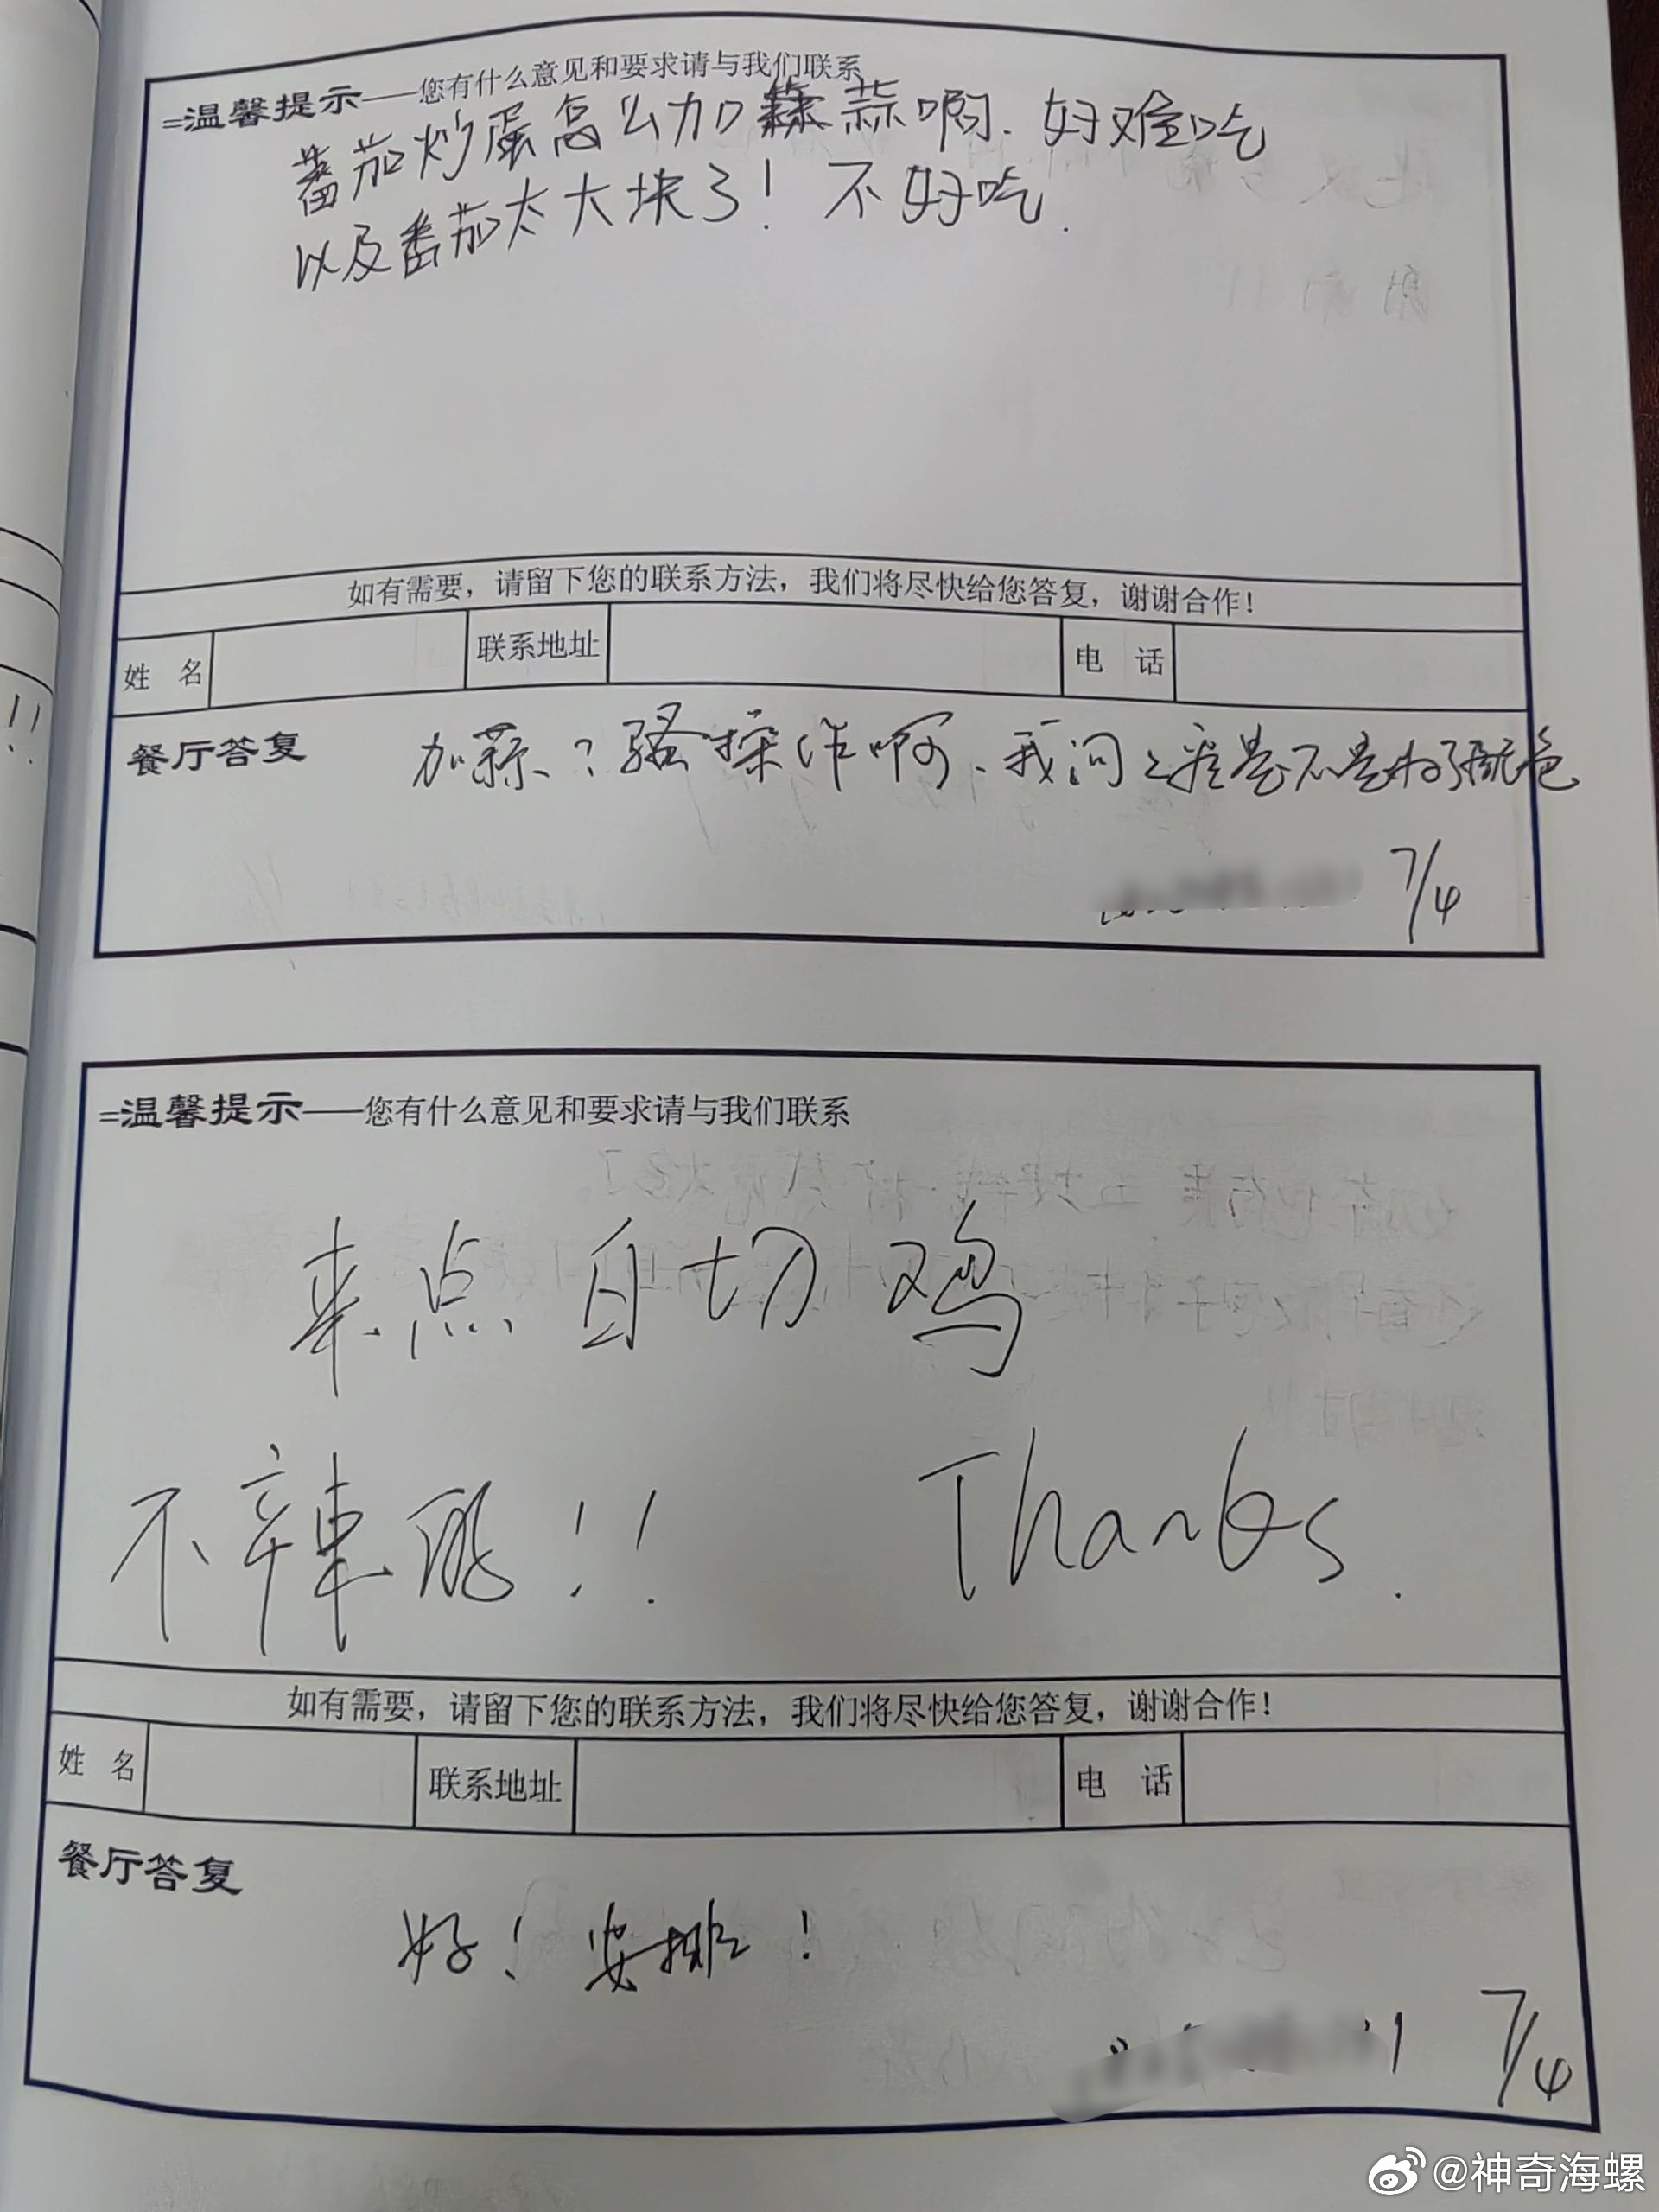 =温馨提示——您有什么意见和要求请与我们联系
蕃茄炒蛋怎么加蒜啊.好难吃
以及番茄太大块了!不好吃.
如有需要,请留下您的联系方法,我们将尽快给您答复,谢谢合作!
姓 名 联系地址 电 话
餐厅答复 加蒜?骚操作啊、我问之 是不是为了
7/4
=温馨提示——您有什么意见和要求请与我们联系
来点白切鸡
不辣的!! Thanks.
如有需要,请留下您的联系方法,我们将尽快给您答复,谢谢合作!
姓 名 联系地址 电 话
餐厅答复
好!安排!
7/4
@神奇海螺